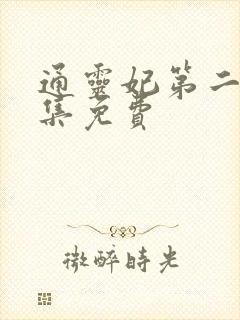 通靈妃第二
集免費
微醉時光